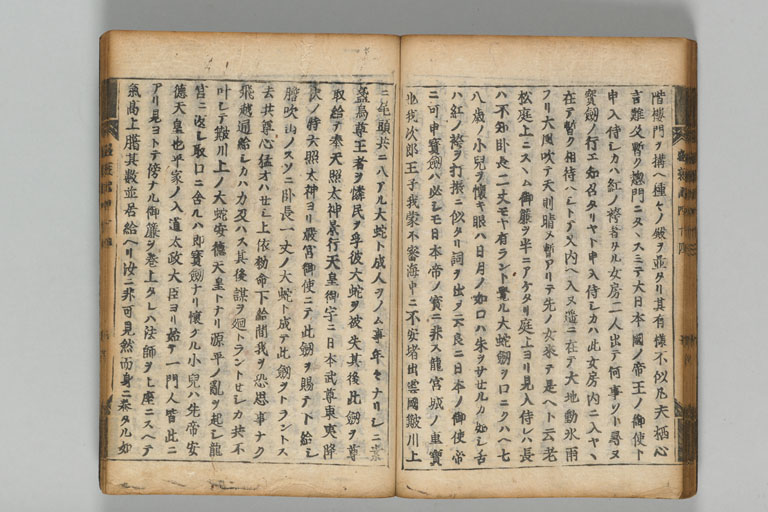 階樓門ヲ搆ヘ種々ノ殿ヲ並タリ其有様不似凡夫栖心
言難及暫ク惣門ニタヽスミテ大日本國ノ帝王ノ御使ト
申入侍シカハ紅ノ袴着タル女房二人出テ何事ソト尋ヌ
寳劔ノ行エ知召タリヤト申入侍シカハ此女房内ニ入ヤヽ
在テ暫ク相待ヘシトテ又内ヘ入ヌ遥ニ在テ大地動氷雨
フリ大風吹テ天則晴ヌ暫アリテ先ノ女来テ是ヘト云老
松庭上ニスヽム御簾ヲ半ニアケタリ庭上ヨリ見入侍レハ長
ハ不知臥長二丈モヤ有ラント覺ル大蛇劔ヲ口ニクハヘ七
八歳ノ小兒ヲ懐キ眼ハ日月ノ如口ハ朱ヲサセルカ如シ舌
ハ紅ノ袴ヲ打振ニ似タリ詞ヲ出ヲ云良ニ日本ノ御使帝
ニ可申寳劔ハ必シモ日本帝ノ寳ニ非ス龍宮城ノ重寳
也我次郎王子我蒙不審海中ニ不安堵出雲國簸川上
ニ尾頭共ニ八アル大蛇ト成人ヲノム事年々ナリシニ素
盞烏尊王者ヲ憐民ヲ孚彼大蛇ヲ被失其後此劔ヲ尊
取給テ奉天照太神景行天皇御宇ニ日本武尊東夷降
伏ノ時天照太神ヨリ嚴宮御使ニテ此劔ヲ賜テト給シ
膽吹山ノスソニ臥長一丈ノ大蛇ト成テ此劔ヲトラントス
去共尊心猛オハセシ上依勅命下給間我ヲ恐思事ナク
飛越通給シカハ力及ハス其後謀ヲ廻トラントセシカ共不
叶シテ簸川上ノ大蛇安德天皇トナリ源平ノ亂ヲ起シ龍
宮ニ返シ取口ニ含ルハ即寳劔ナリ懐クル小兒ハ先帝安
德天皇也平家ノ入道太政大臣ヨリ始テ一門人皆此ニ
アリ見ヨトテ傍ナル御簾ヲ巻上タレハ法師ヲ上座ニスヘテ
氣高上臈其數並居給ヘリ汝ニ非可見然而身ニ巻タル如